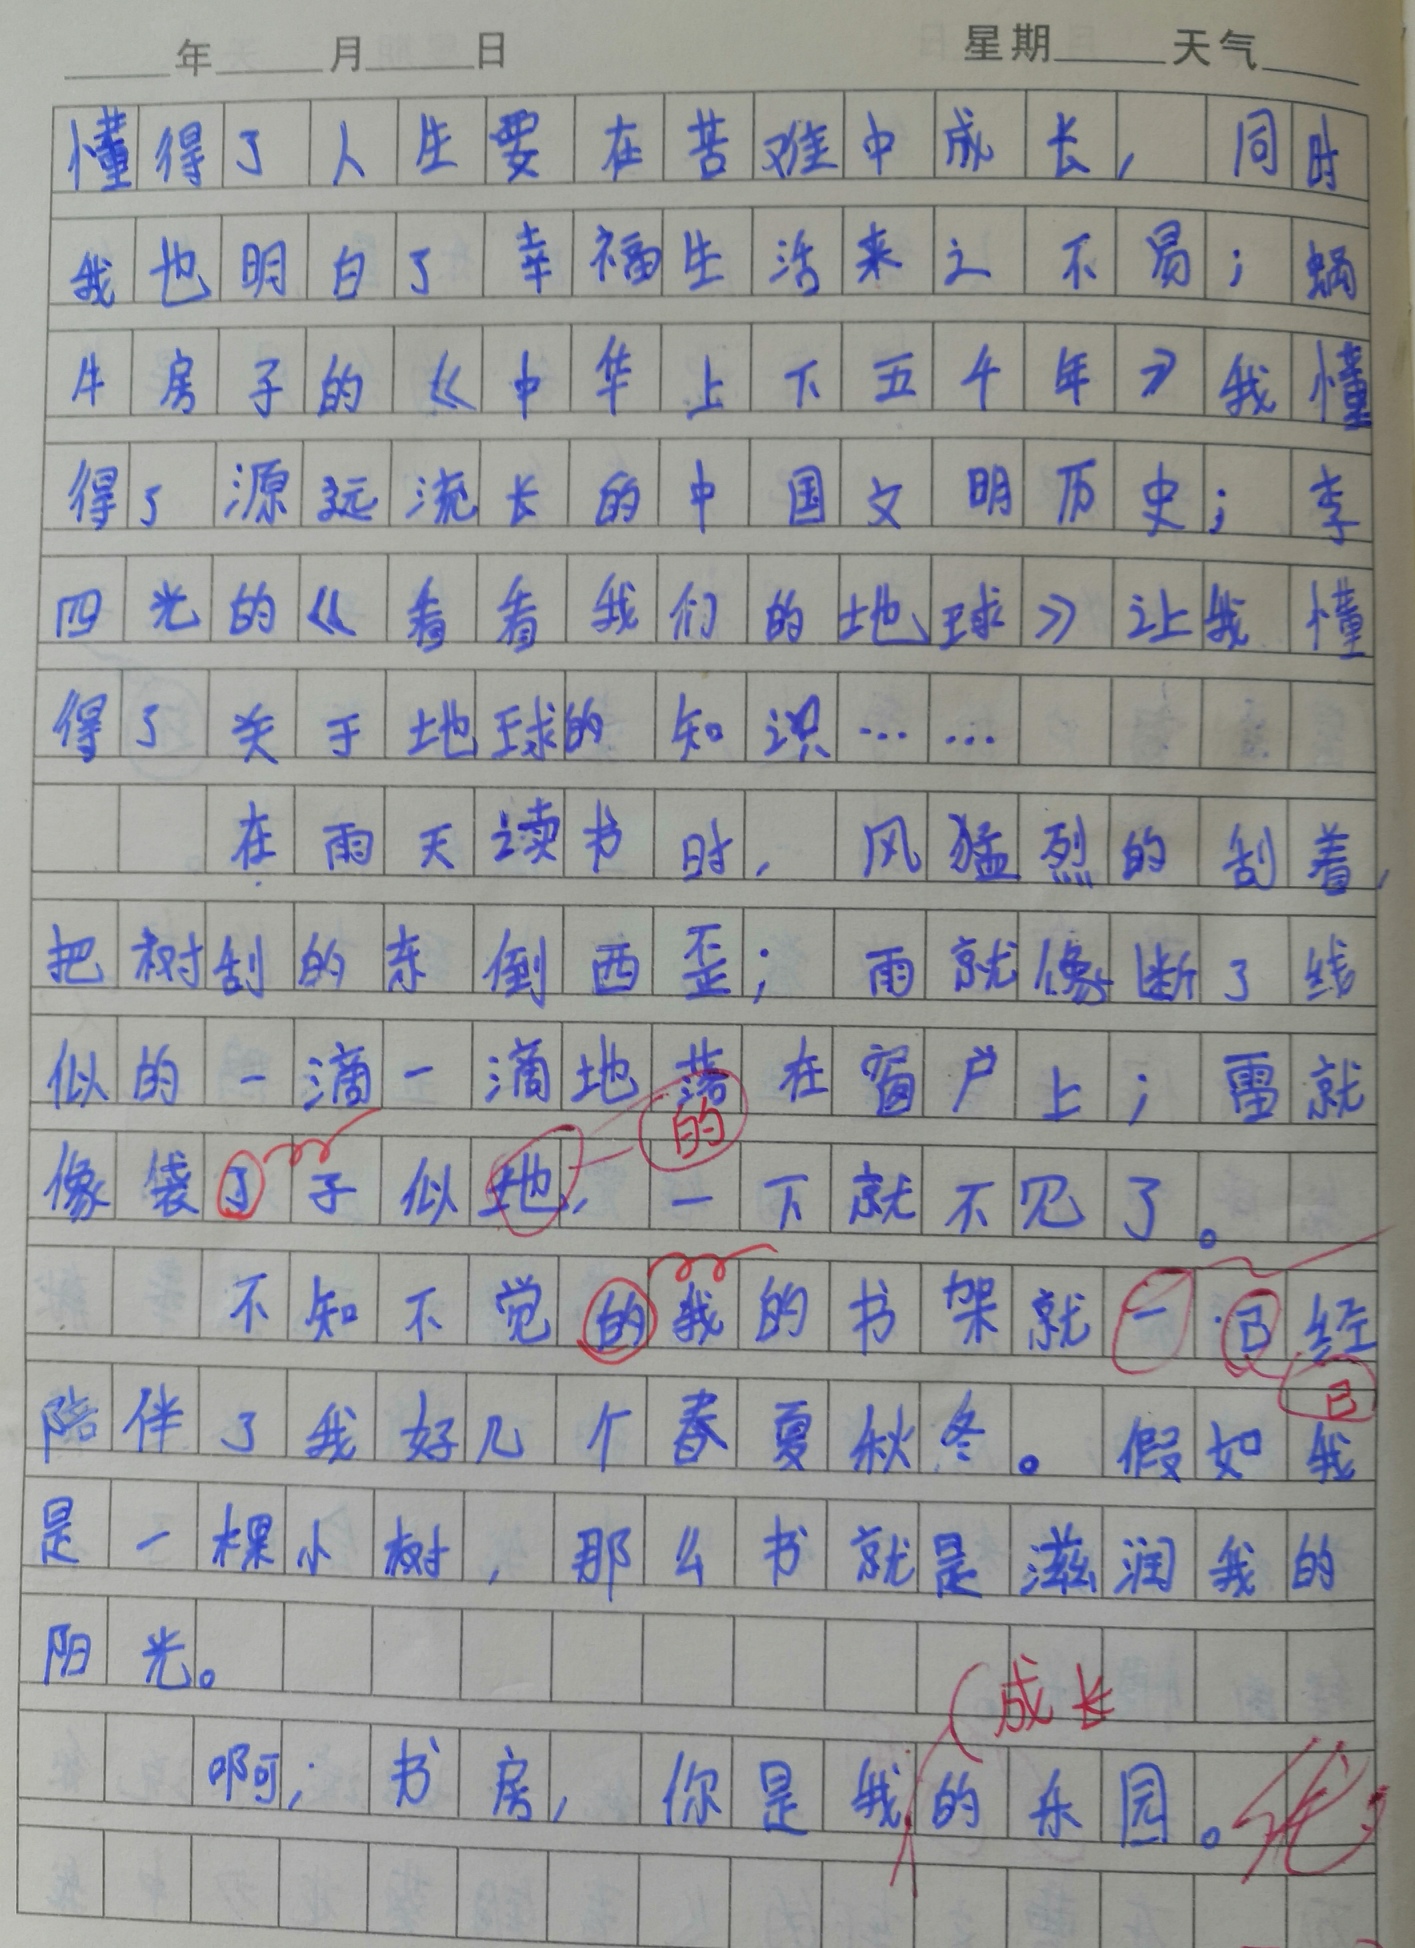 年 月 日 星期 天气
懂得了人生要在苦难中成长，同时
我也明白了幸福生活来之不易；蜗
牛房子的《中华上下五千年》我懂
得了源远流长的中国文明历史；李
四光的《看看我们的地球》让我懂
得了关于地球的知识……
在雨天读书时，风猛烈的刮着，
把树刮的东倒西歪；雨就像断了线
似的一滴一滴地落在窗户上；雷就
的
像袋了子似地，一下就不见了。
不知不觉的我的书架就一已经
已
陪伴了我好几个春夏秋冬。假如我
是一棵小树，那么书就是滋润我的
阳光。
成长
啊；书房，你是我的乐园。优